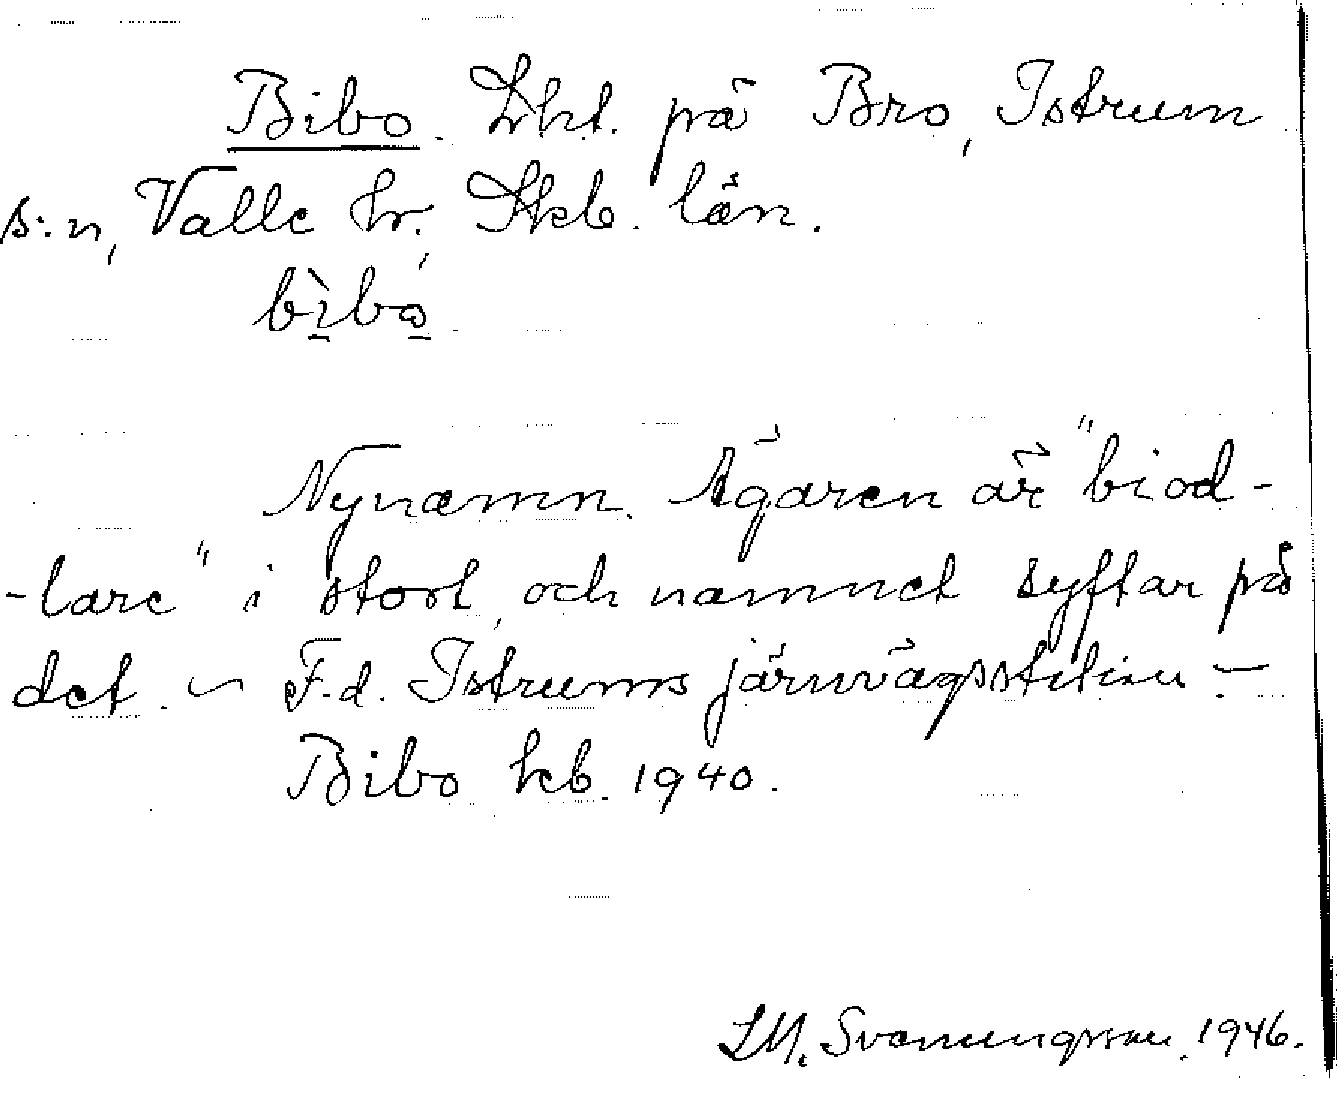 Bibo. Lht. på Bro, Istrum
s:n, Valle hr., Skb. län.
bìbo
Nynamn. Ägaren är "biod-
-lare" i stort, och namnet syftar på
det. – F.d. Istrums järnvägsstation. –
Bibo kb. 1940.
S.M. Svanungsson. 1946.